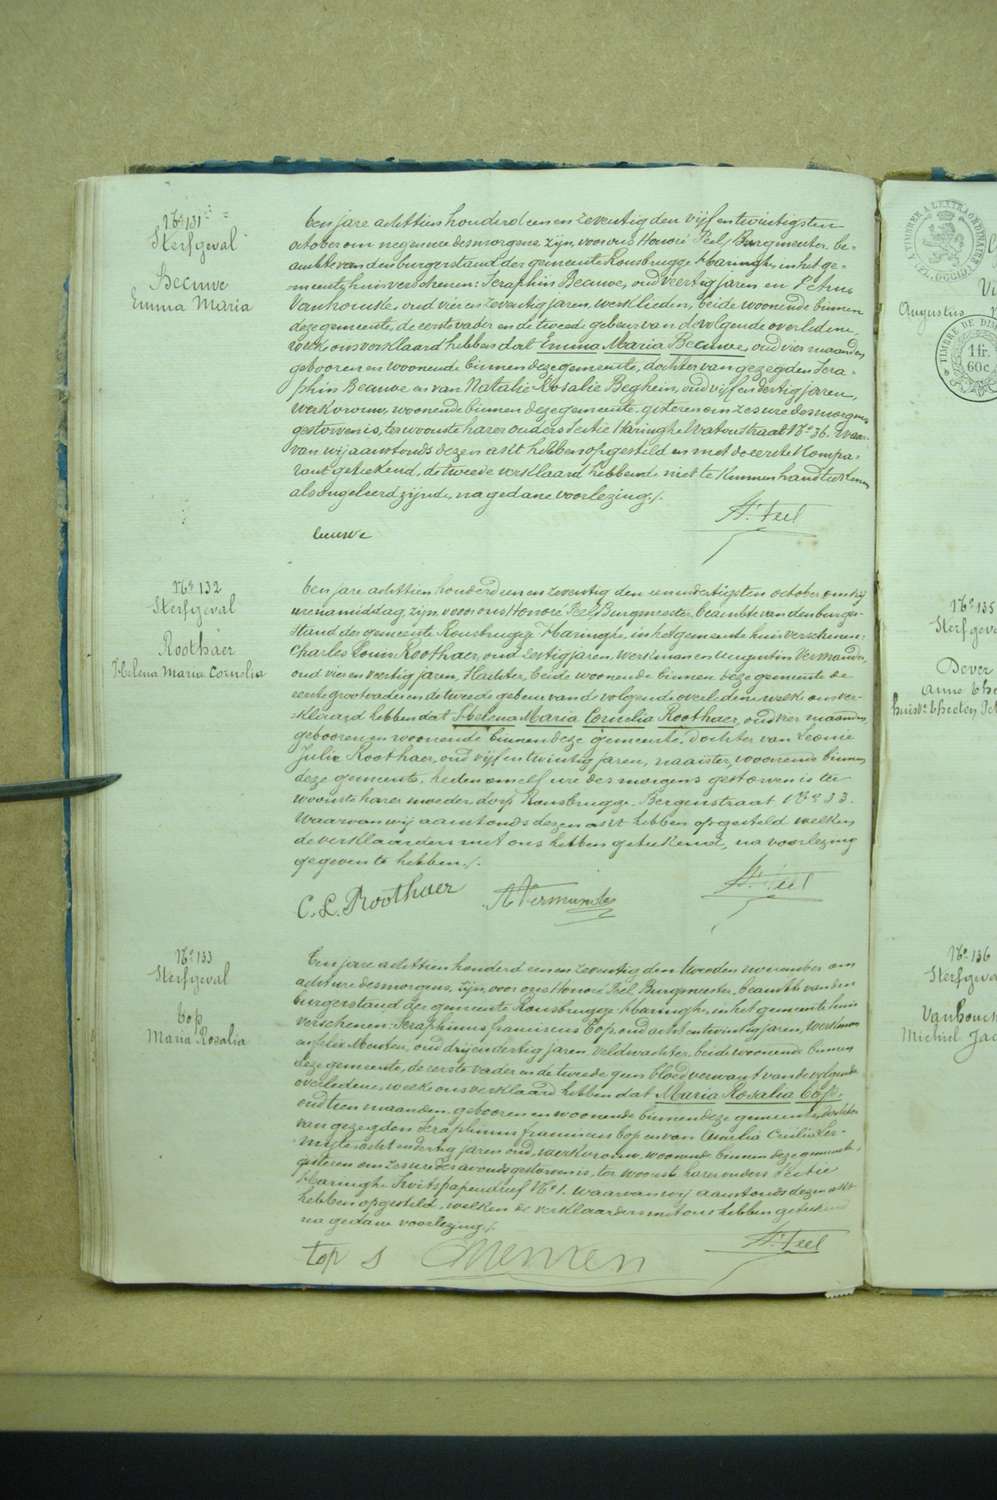 No 131
Sterfgeval
Beeuwe
Emma Maria
Een jare achttien honderd een en zeventig den vijf en twintigsten
october om negen ure des morgens zijn voor ons Honoré Feel, Burgmeester be-
ambte van den burgerstand der gemeente Rousbrugge Haringhe, in het ge-
meentehuis verschenen: Seraphin Beeuwe, oud veertig jaren en Petrus
Vanhoucke, oud vier en zeventig jaren, werklieden, beide woonende binnen
deze gemeente, de eerste vader en de tweede gebuur van de volgende overledene,
welk ons verklaard hebben dat Emma Maria Beeuwe, oud vier maanden
geboren en woonende binnen deze gemeente, dochter van gezegden Sera-
phin Beeuwe en van Natalie Rosalie Beghein, oud vijf en dertig jaren,
werkvrouw, woonende binnen deze gemeente, gisteren om zes ure des morgens
gestorven is, ter woonste harer ouders Sectie Haringhe Watoustraat No 36. Waar-
van wij aanstonds dezen akt hebben opgesteld en met de eerste Kompa-
rant geteekend, de tweede verklaard hebbende niet te kunnen handteekenen
als ongeleerd zijnde, na gedane voorlezing./.
H. Feel
beeuwe
No 132
Sterfgeval
Roothaer
Helena Maria Cornelia
Een jare achttien honderd een en zeventig den een en dertigsten october om vijf
ure namiddag zijn voor ons Honoré Feel Burgmeester beambte van den burger-
stand der gemeente Rousbrugge Haringhe, in het gemeente huis verschenen:
Charles Louis Roothaer, oud zestig jaren, werkman en Augustin Vermander,
oud vier en veertig jaren, Kladter, beide woonende binnen deze gemeente de
eerste grootvader en de tweede gebuur van de volgende overledene, welk ons ver-
klaard hebben dat Helena Maria Cornelia Roothaer, oud vier maanden
geboren en woonende binnen deze gemeente, dochter van Leonie
Julie Roothaer, oud vijf en twintig jaren, naaister, woonende binnen
deze gemeente, heden om elf ure des morgens gestorven is ter
woonste harer moeder, dorp Rousbrugge Bergenstraat No 33.
Waarvan wij aanstonds dezen akt hebben opgesteld welken
de verklaarders met ons hebben geteekend, na voorlezing
gegeven te hebben./.
C. L. Roothaer A Vermander H. Feel
No 133
Sterfgeval
Top
Maria Rosalia
Een jare achttien honderd een en zeventig den tweeden november om
acht ure des morgens, zijn voor ons Honoré Feel Burgmeester, beambte van den
burgerstand der gemeente Rousbrugge Haringhe, in het gemeente huis
verschenen: Seraphinus franciscus Top, oud acht en twintig jaren, werkman
en Felix Menten, oud drij en dertig jaren, veldwachter, beide woonende binnen
deze gemeente, de eerste vader en de tweede geen bloedverwant van de volgende
overledene, welke ons verklaard hebben dat Maria Rosalia Top,
oud tien maanden, geboren en woonende binnen deze gemeente, dochter
van gezegden Seraphinus franciscus Top en van Amelia
acht en dertig jaren oud, werkvrouw, woonende binnen deze gemeente,
gisteren om zes ure des avonds gestorven is, ter woonste harer ouders Sectie
Haringhe No 1. waarvan wij aanstonds dezen akt
hebben opgesteld, welken de verklaarders met ons hebben geteekend
na gedane voorlezing./.
H. Feel
top s Menten
Augustus
TIMBRE DE
1 fr.
60c.
No 135
Sterfgeva
Dever
No 136
Sterfgeva
Vanhouck
Michiel Jac